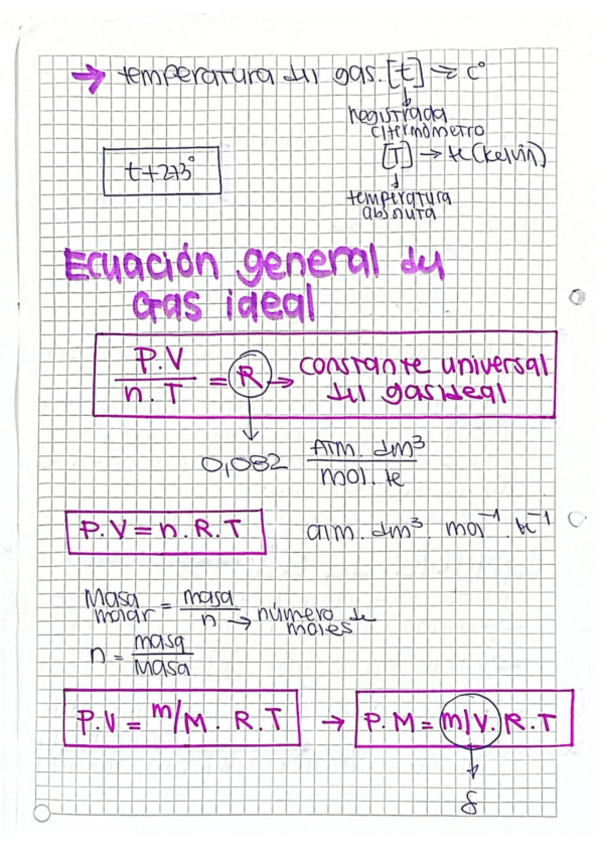 → temperatura del gas. [t] => c°
registrada
c/termómetro
[T] → K (Kelvin)
t+273°
temperatura
absoluta
Ecuación general del
Gas ideal
P.V / n.T = R → constante universal
del gas ideal
0,082 Atm. dm³ / mol. K
P.V = n.R.T atm. dm³. mol⁻¹. K⁻¹
Masa molar = masa / n → número de moles
n = masa / Masa
P.V = m/M . R.T → P.M = m/V. R.T
δ